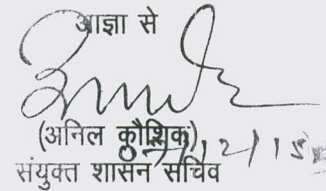 आज्ञा से
(अनिल कौशिक)
संयुक्त शासन सचिव